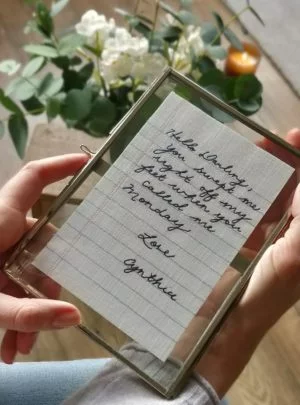 Hello Darling
you sweep me
right off my
feet when you
called me
Monday
Love
Cynthia